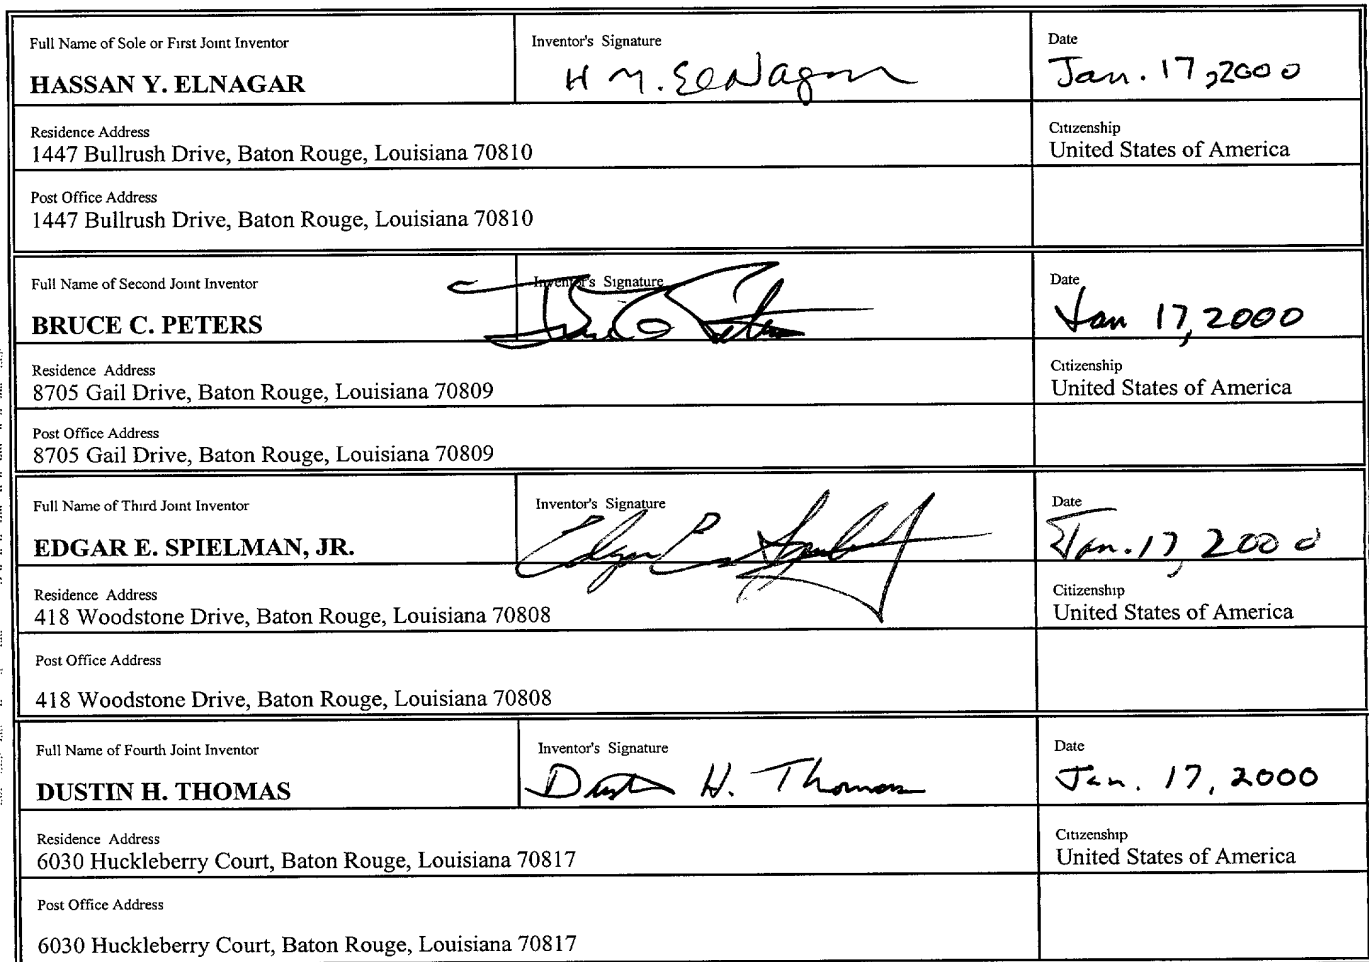 Full Name of Sole or First Joint Inventor
HASSAN Y. ELNAGAR
Inventor's Signature
H Y. ElNagar
Date
Jan. 17, 2000
Residence Address
1447 Bullrush Drive, Baton Rouge, Louisiana 70810
Citizenship
United States of America
Post Office Address
1447 Bullrush Drive, Baton Rouge, Louisiana 70810
Full Name of Second Joint Inventor
BRUCE C. PETERS
Inventor's Signature
Date
Jan 17, 2000
Residence Address
8705 Gail Drive, Baton Rouge, Louisiana 70809
Citizenship
United States of America
Post Office Address
8705 Gail Drive, Baton Rouge, Louisiana 70809
Full Name of Third Joint Inventor
EDGAR E. SPIELMAN, JR.
Inventor's Signature
Date
Jan. 17, 2000
Residence Address
418 Woodstone Drive, Baton Rouge, Louisiana 70808
Citizenship
United States of America
Post Office Address
418 Woodstone Drive, Baton Rouge, Louisiana 70808
Full Name of Fourth Joint Inventor
DUSTIN H. THOMAS
Inventor's Signature
Dustin H. Thomas
Date
Jan. 17, 2000
Residence Address
6030 Huckleberry Court, Baton Rouge, Louisiana 70817
Citizenship
United States of America
Post Office Address
6030 Huckleberry Court, Baton Rouge, Louisiana 70817